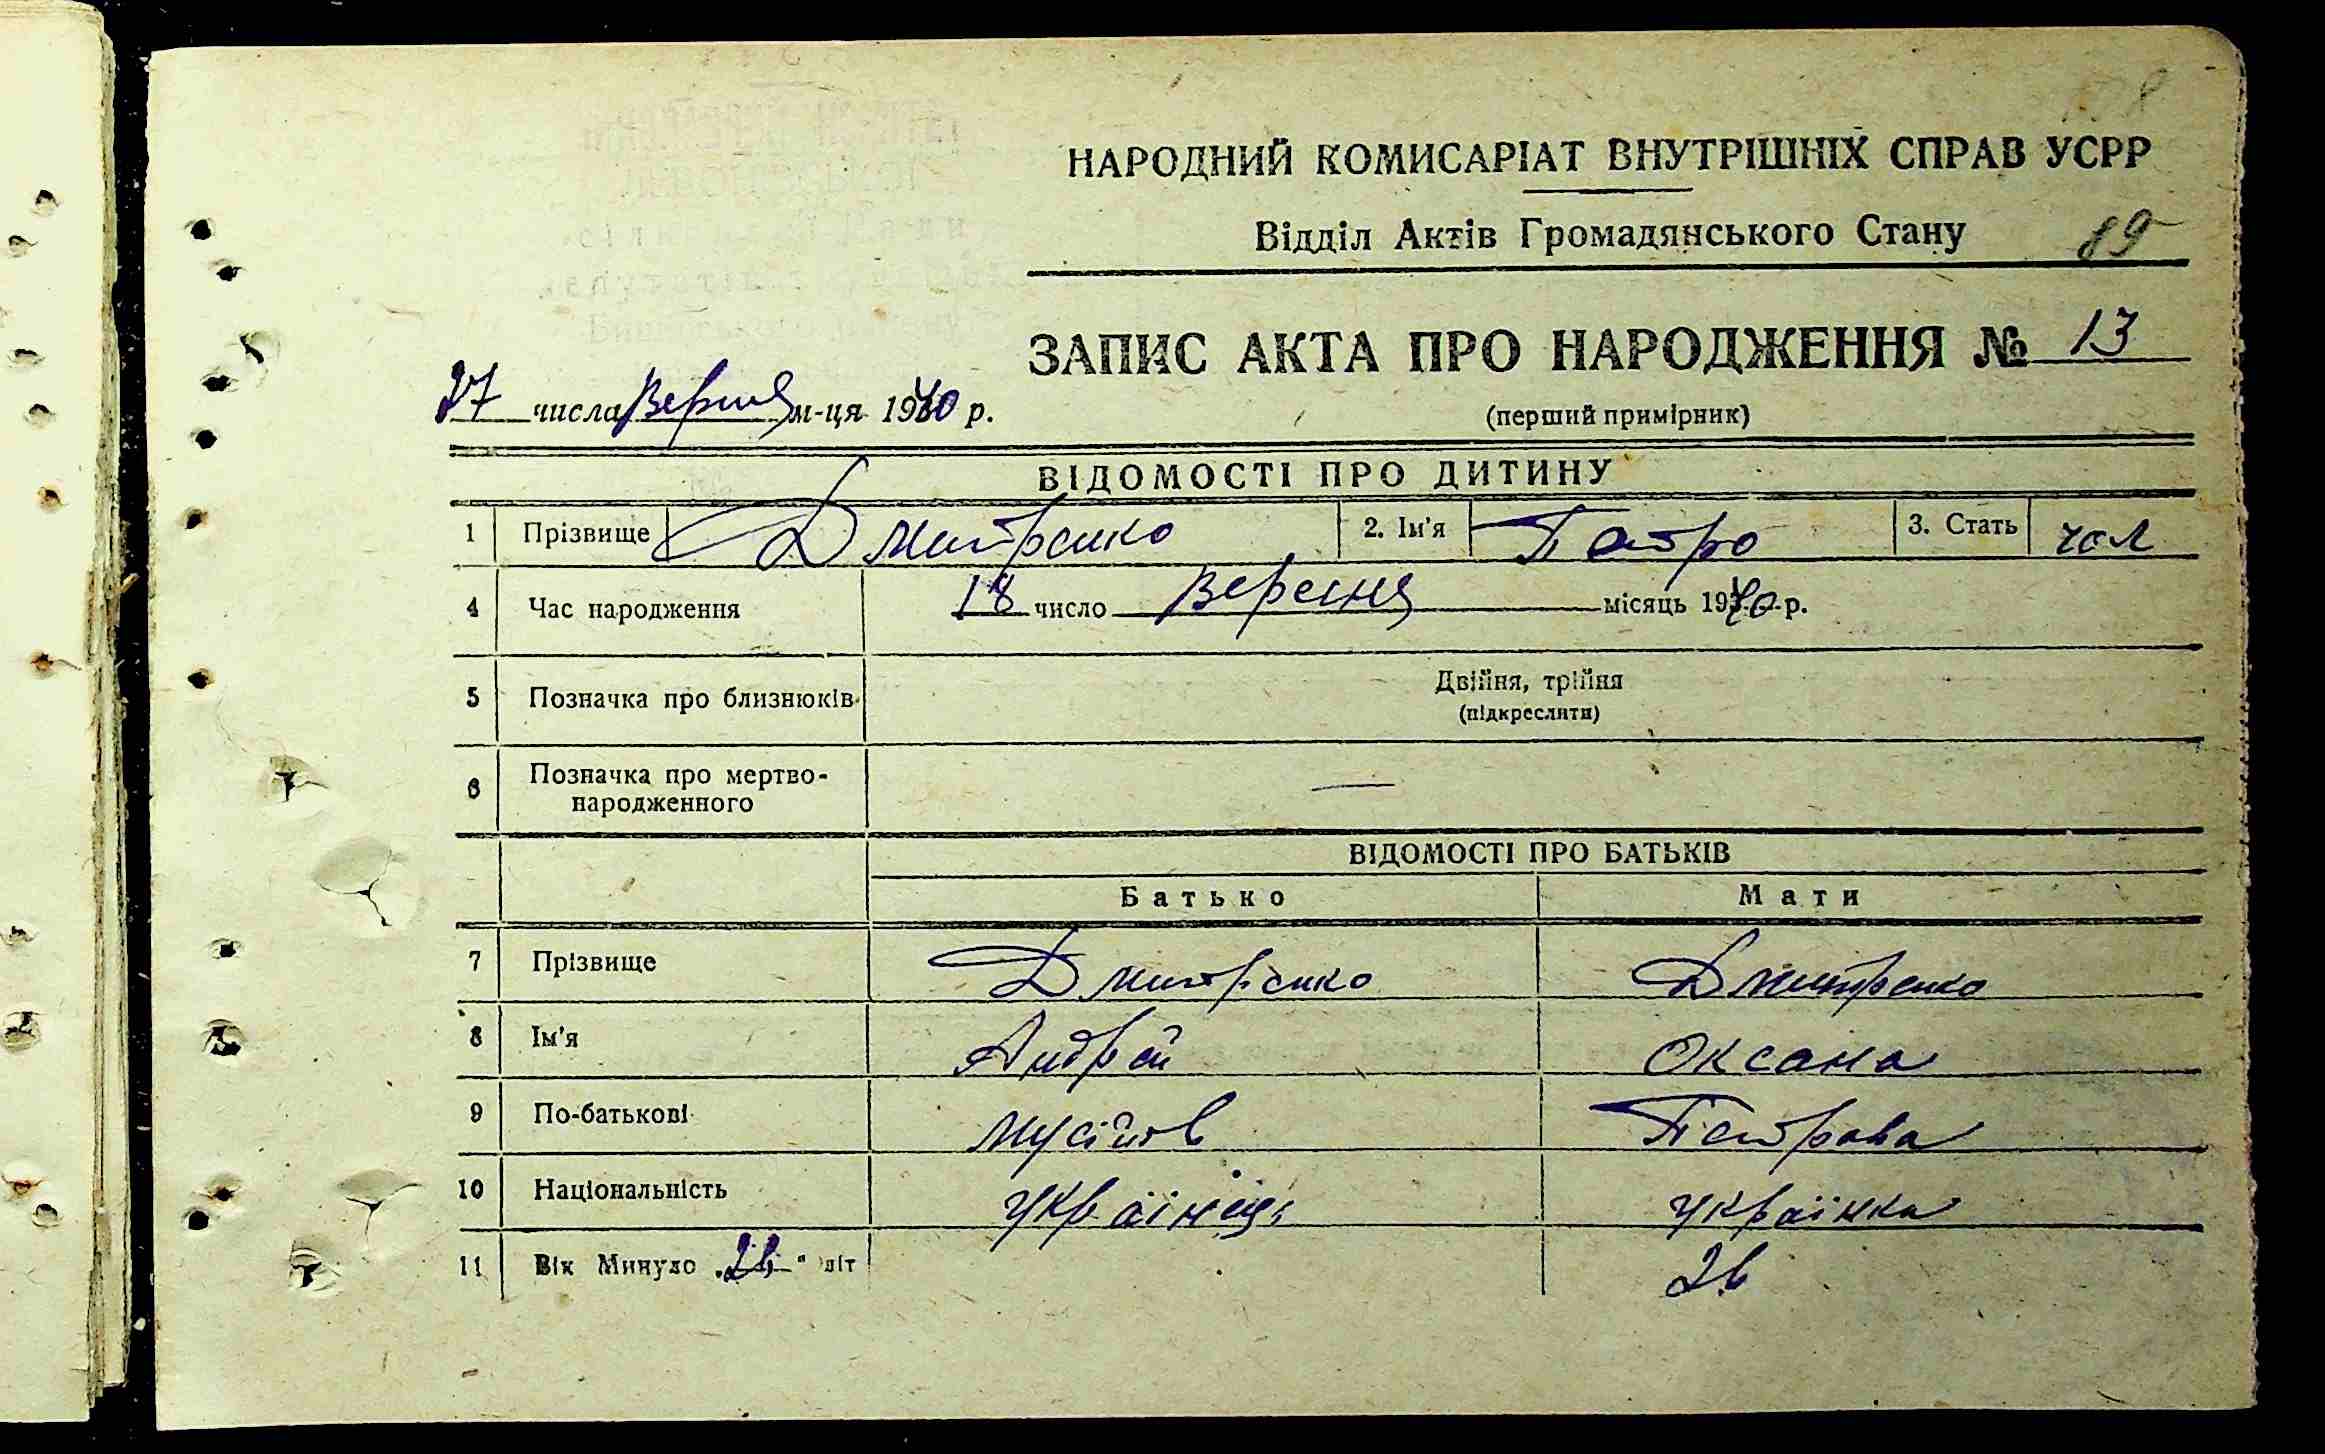 НАРОДНИЙ КОМИСАРІАТ ВНУТРІШНІХ СПРАВ УСРР
Відділ Актів Громадянського Стану 89
ЗАПИС АКТА ПРО НАРОДЖЕННЯ № 13
27 числа Вересня м-ця 1940 р.
(перший примірник)
ВІДОМОСТІ ПРО ДИТИНУ
1 Прізвище Дмитренко 2. Ім'я Петро 3. Стать чол
4 Час народження 18 число Вересня місяць 1940 р.
5 Позначка про близнюків Двійня, трійня
(підкреслити)
6 Позначка про мертво-
народженного —
ВІДОМОСТІ ПРО БАТЬКІВ
Батько Мати
7 Прізвище Дмитренко Дмитренко
8 Ім'я Андрей Оксана
9 По-батькові Мусійов Петрова
10 Національність українець українка
11 Вік Минуло „ “ літ